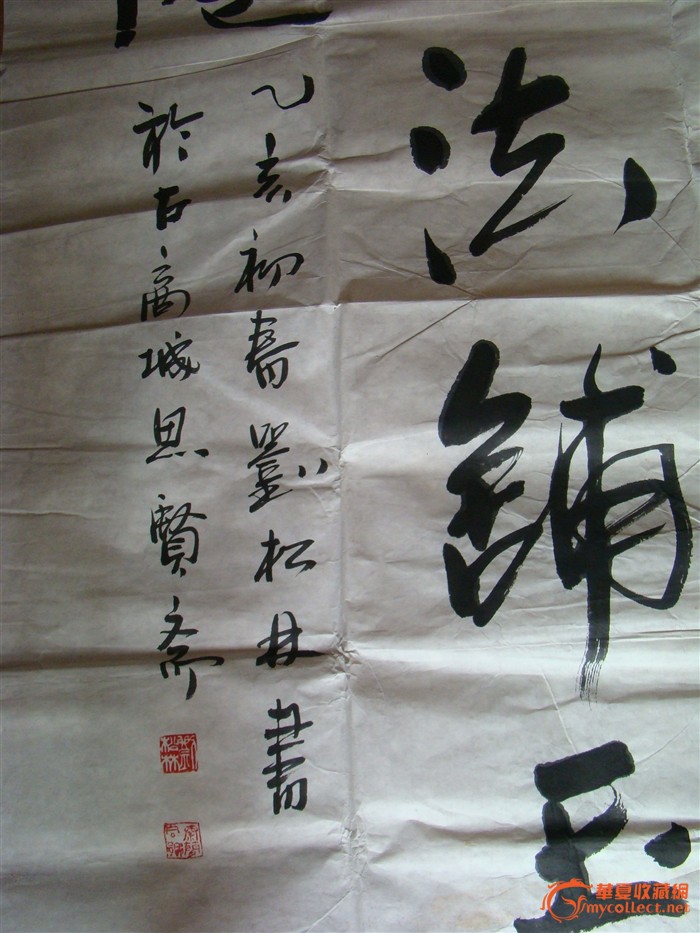 法鋪玉
乙亥初春劉松林書
於古商城思賢齋
劉松林
華夏收藏網
mycollect.net